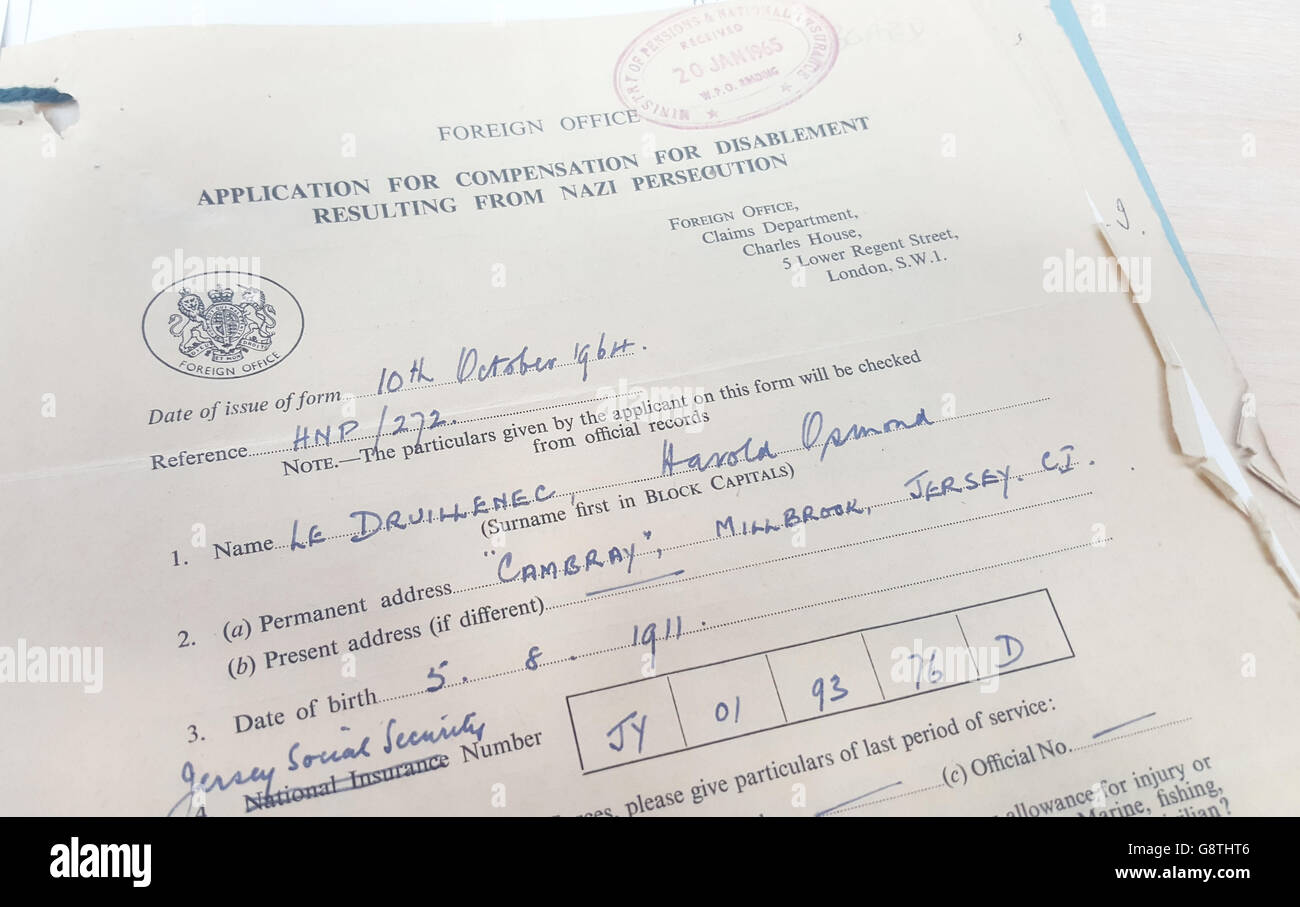 MINISTRY OF PENSIONS & NATIONAL INSURANCE
RECEIVED
20 JAN 1965
FOREIGN OFFICE
APPLICATION FOR COMPENSATION FOR DISABLEMENT
RESULTING FROM NAZI PERSECUTION
FOREIGN OFFICE,
Claims Department,
Charles House,
5 Lower Regent Street,
London, S.W.1.
FOREIGN OFFICE
Date of issue of form 10th October 1964.
Reference HNP/272.
NOTE.—The particulars given by the applicant on this form will be checked
from official records
1. Name LE DRUILLENEC, Harold Osmond
(Surname first in BLOCK CAPITALS)
2. (a) Permanent address "CAMBRAY", MILLBROOK, JERSEY. C.I.
(b) Present address (if different)
3. Date of birth 5. 8. 1911.
Jersey Social Security
4 National Insurance Number JY 01 93 76 D
please give particulars of last period of service:
(c) Official No.
allowance for injury or
Marine, fishing,
alamy
Image ID: G8THT6
www.alamy.com